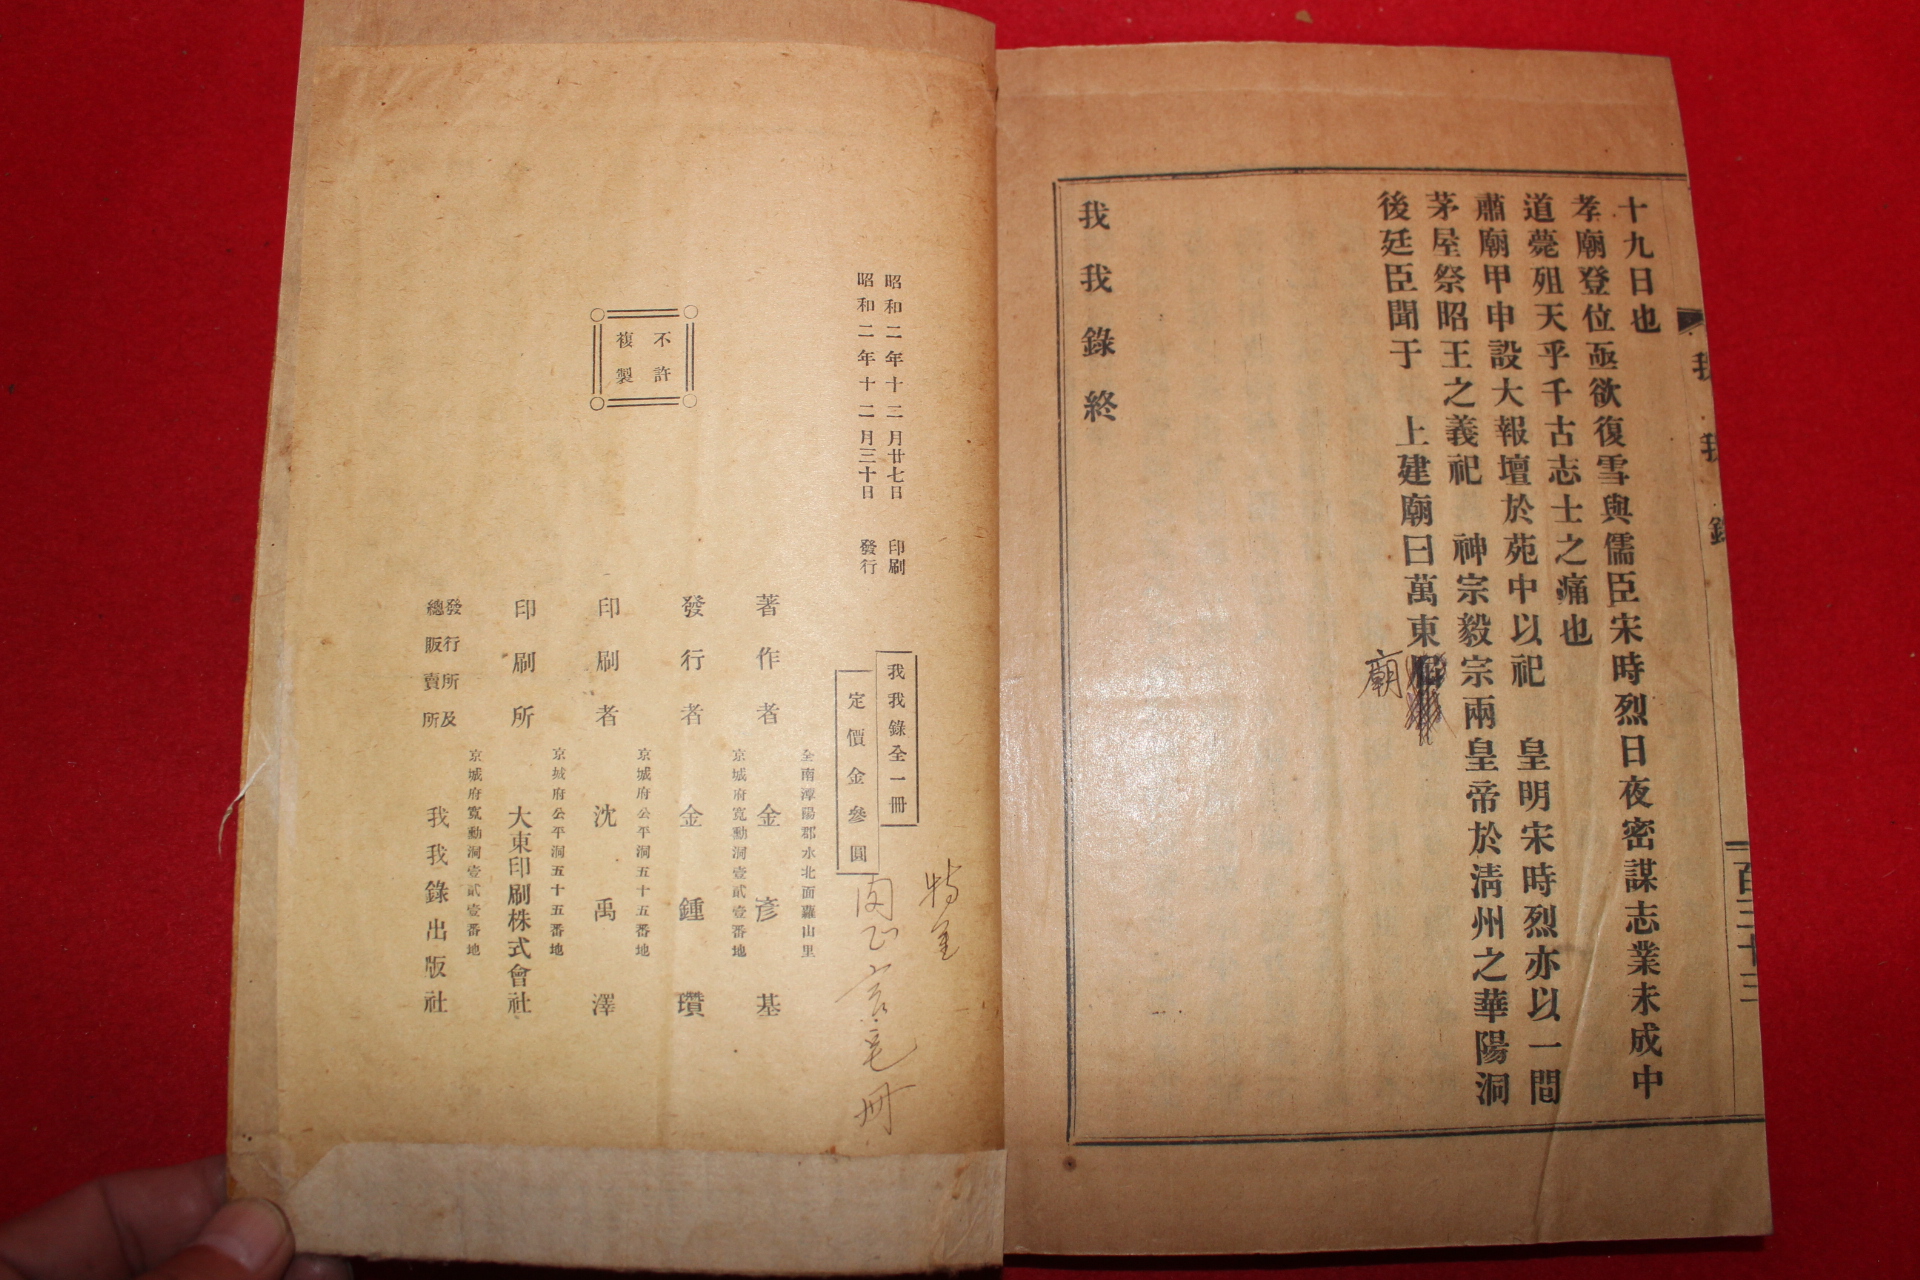 十九日也
孝廟登位亟欲復雪與儒臣宋時烈日夜密謀志業未成中
道薨殂天乎千古志士之痛也
肅廟甲申設大報壇於苑中以祀 皇明宋時烈亦以一間
茅屋祭昭王之義祀 神宗毅宗兩皇帝於淸州之華陽洞
後廷臣聞于 上建廟曰萬東
廟
我我錄終
我我錄
百三十三
昭和二年十二月廿七日 印刷
昭和二年十二月三十日 發行
不許
複製
我我錄全一冊
定價金參圓
全南潭陽郡水北面羅山里
著作者 金彥基
京城府寬勳洞壹貳壹番地
發行者 金鍾瓚
京城府公平洞五十五番地
印刷者 沈禹澤
京城府公平洞五十五番地
印刷所 大東印刷株式會社
京城府寬勳洞壹貳壹番地
發行所及
總販賣所 我我錄出版社
冊